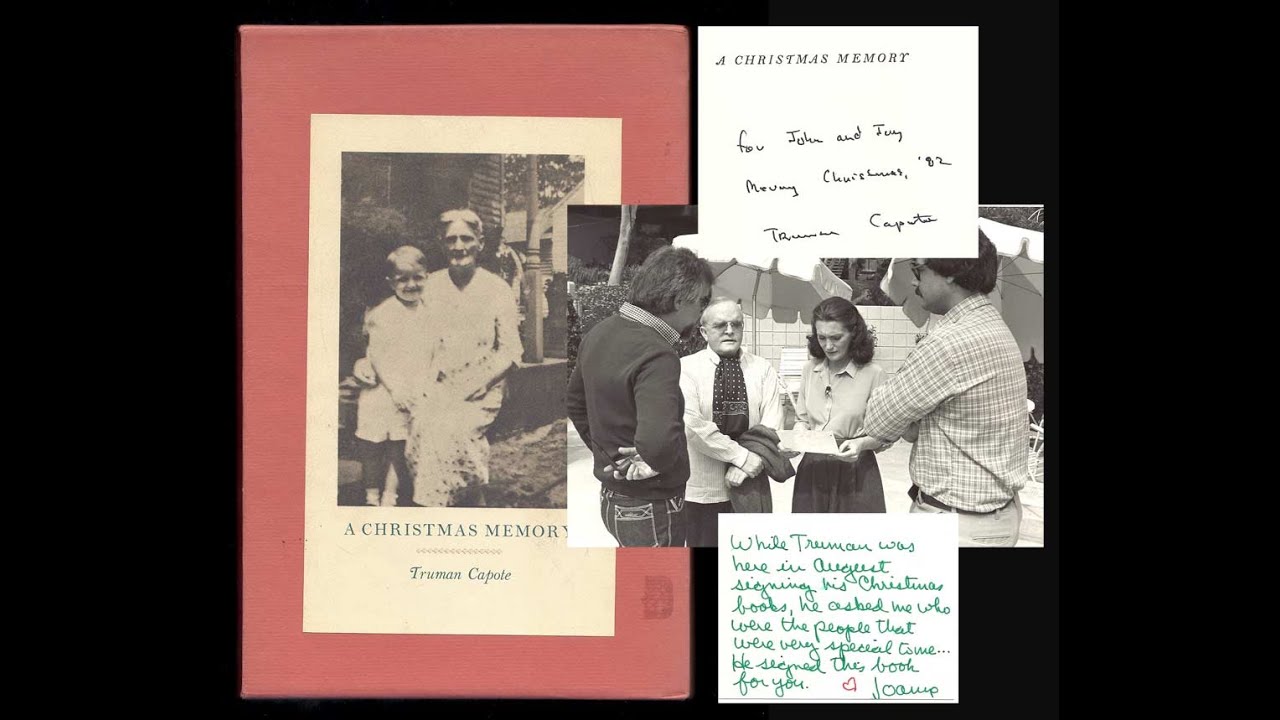 A CHRISTMAS MEMORY
Truman Capote
A CHRISTMAS MEMORY
for John and
Merry Christmas, '82
Truman Capote
While Truman was
here in August
signing his Christmas
books, he asked me who
were the people that
were very special to me...
He signed this book
for you. ♡ Joanne